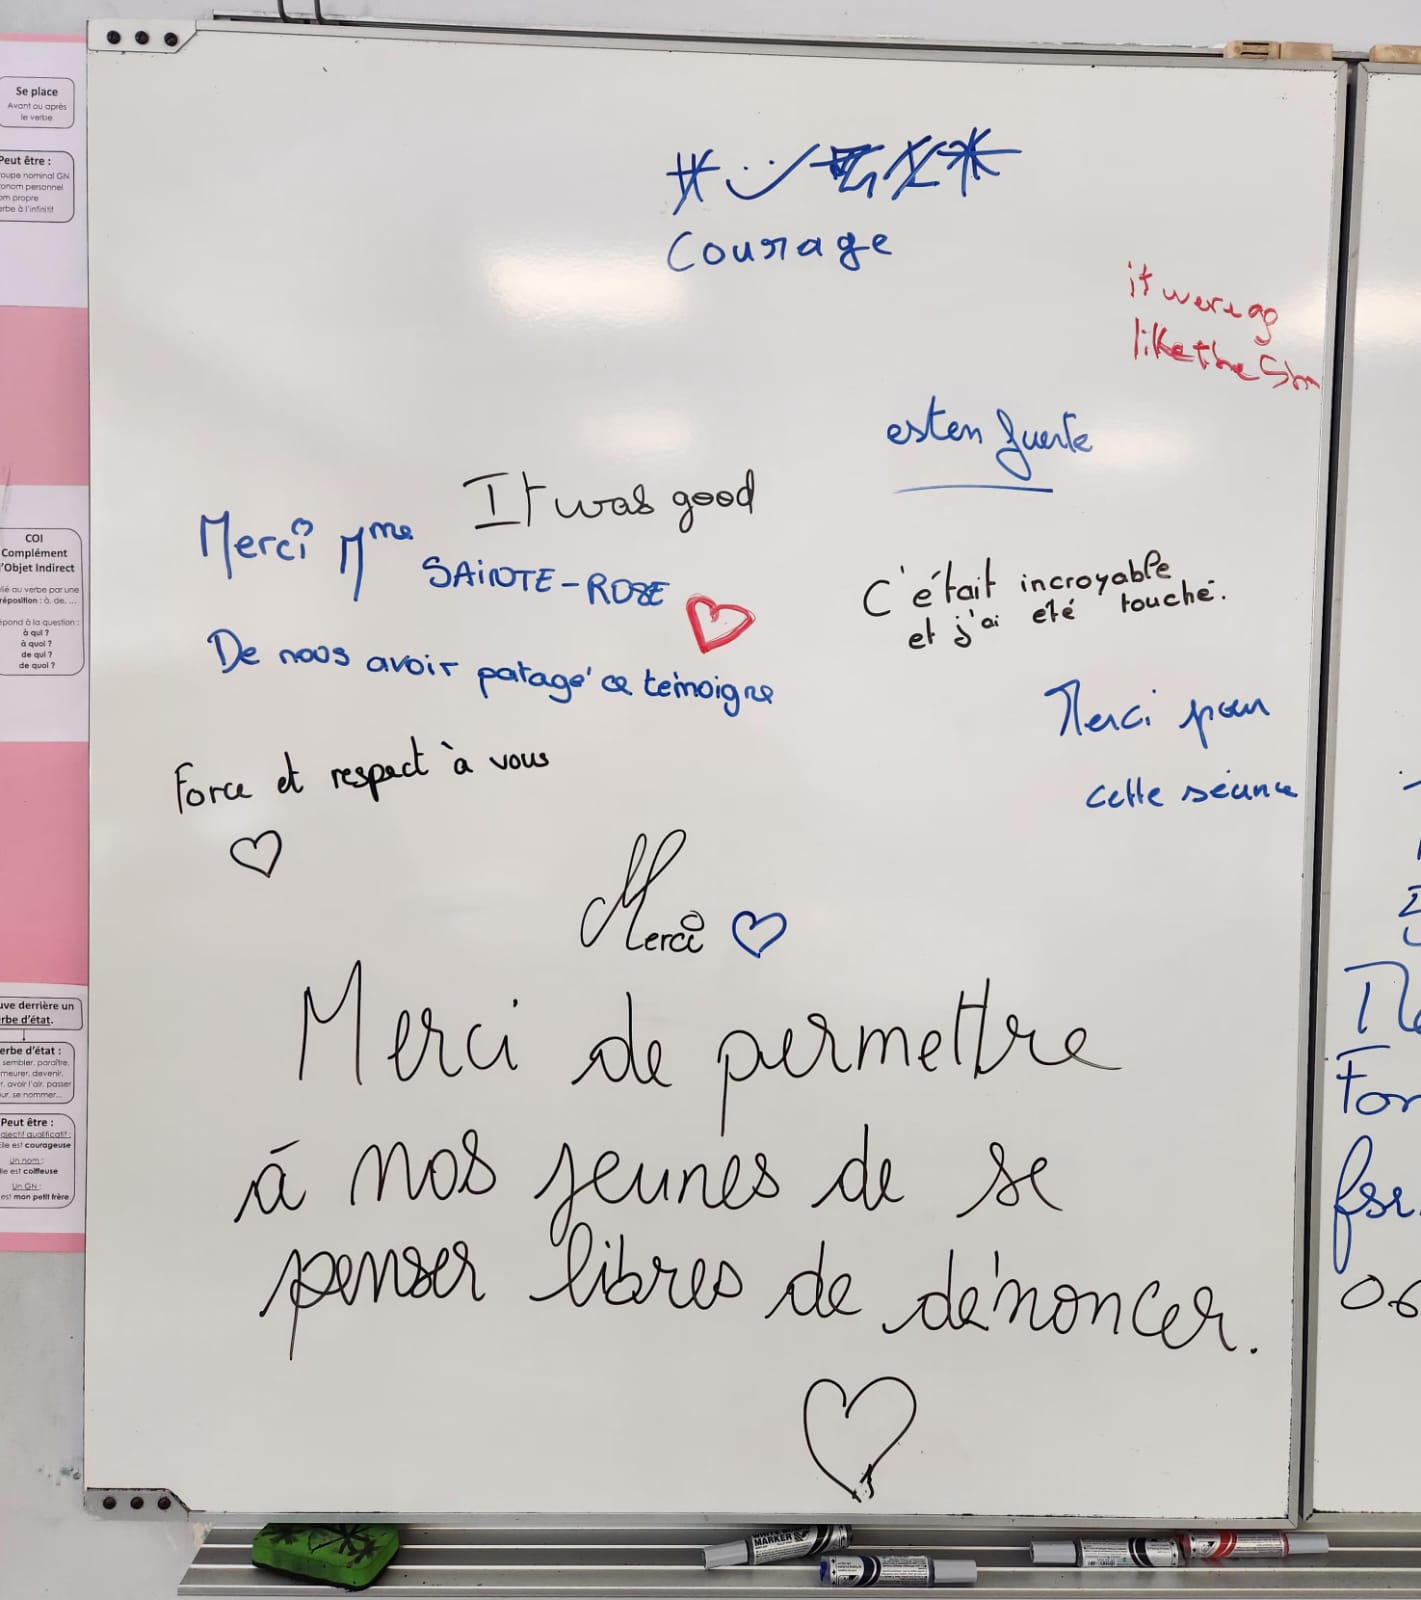 Se place
Avant ou après
le verbe
Peut être :
oupe nominal GN
onom personnel
om propre
erbe à l'infinitif
COI
Complément
'Objet Indirect
lié au verbe par une
réposition : à, de, ...
épond à la question :
à qui ?
à quoi ?
de qui ?
de quoi ?
uve derrière un
rbe d'état.
erbe d'état :
sembler, paraître,
meurer, devenir,
r, avoir l'air, passer
ur, se nommer...
Peut être :
djectif qualificatif :
lle est courageuse
Un nom :
lle est coiffeuse
Un GN :
est mon petit frère
Courage
it were go
like the
esten fuerte
It was good
Merci Mme SAINTE-ROSE
De nous avoir patagé ce témoigne
C'était incroyable
et j'ai été touché.
Merci pour
cette séance
Force et respect à vous
Merci
Merci de permettre
à nos jeunes de se
penser libres de dénoncer.
For
06
MARKER